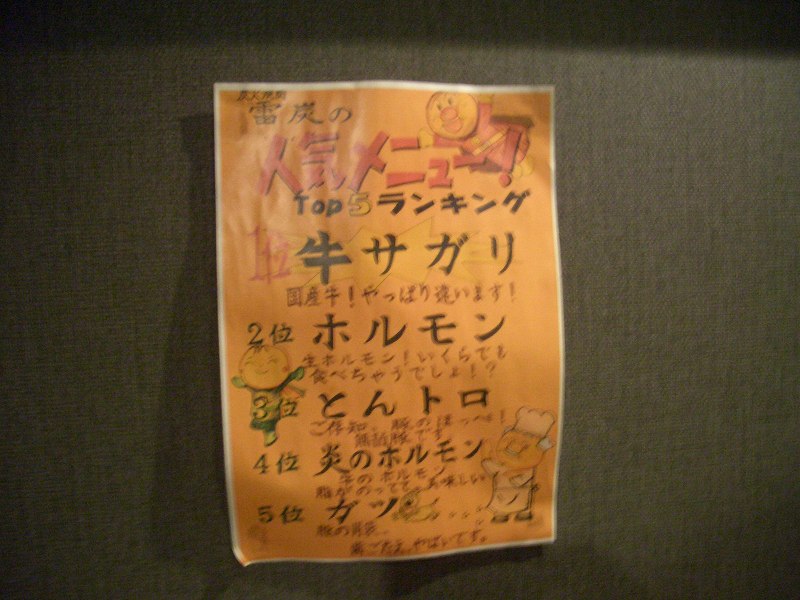 炭火焼肉
雷炭の
人気メニュー!
Top5ランキング
1位 牛サガリ
国産牛!やっぱり違います!
2位 ホルモン
生ホルモン!いくらでも
食べちゃうでしょ!?
3位 とんトロ
ご存知、豚のほっぺ!
無菌豚です
4位 炎のホルモン
牛のホルモン
脂がのってて、美味しい
5位 ガツ
豚の胃袋
歯ごたえ、やばいです。